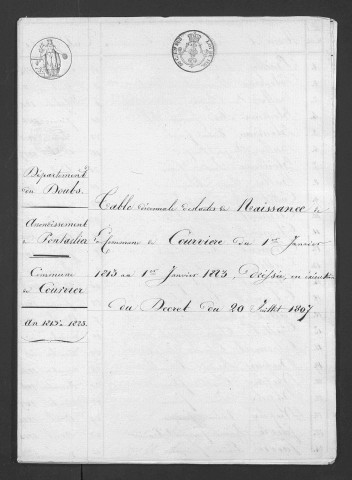 Département
du Doubs.
Arrondissement
de Pontarlier
Commune
de Courvier
An 1813 à 1823.
Table décennale des actes de Naissance de
la Commune de Courviere du 1er Janvier
1813 au 1er Janvier 1823. Dressée, en éxécution
du Decret du 20 Juillet 1807